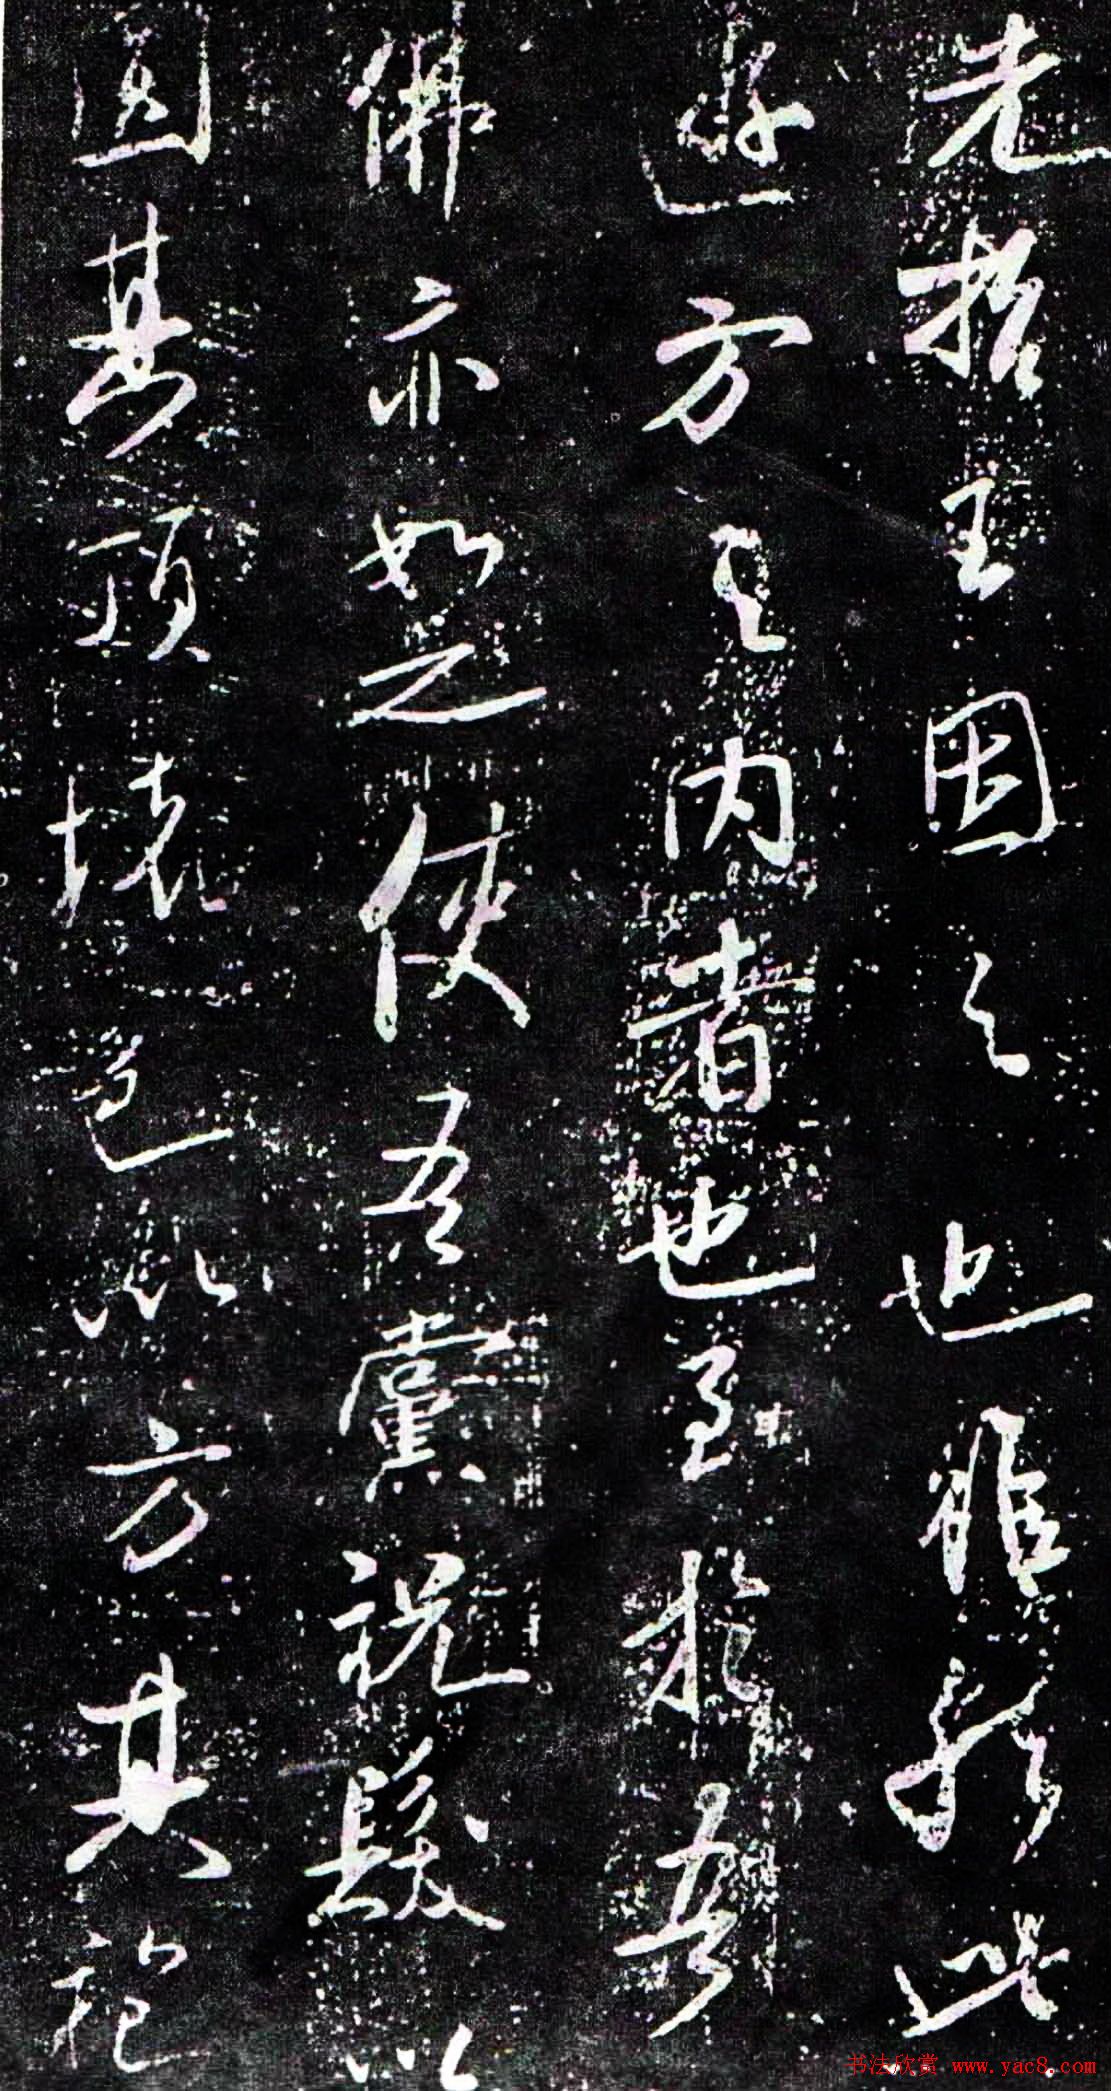 先哲王因之也雖形此
遊方之内者也至於吾
佛亦如之使吾黨祝髮以
圓其頂壞色以方其袍
书法欣赏 www.yac8.com